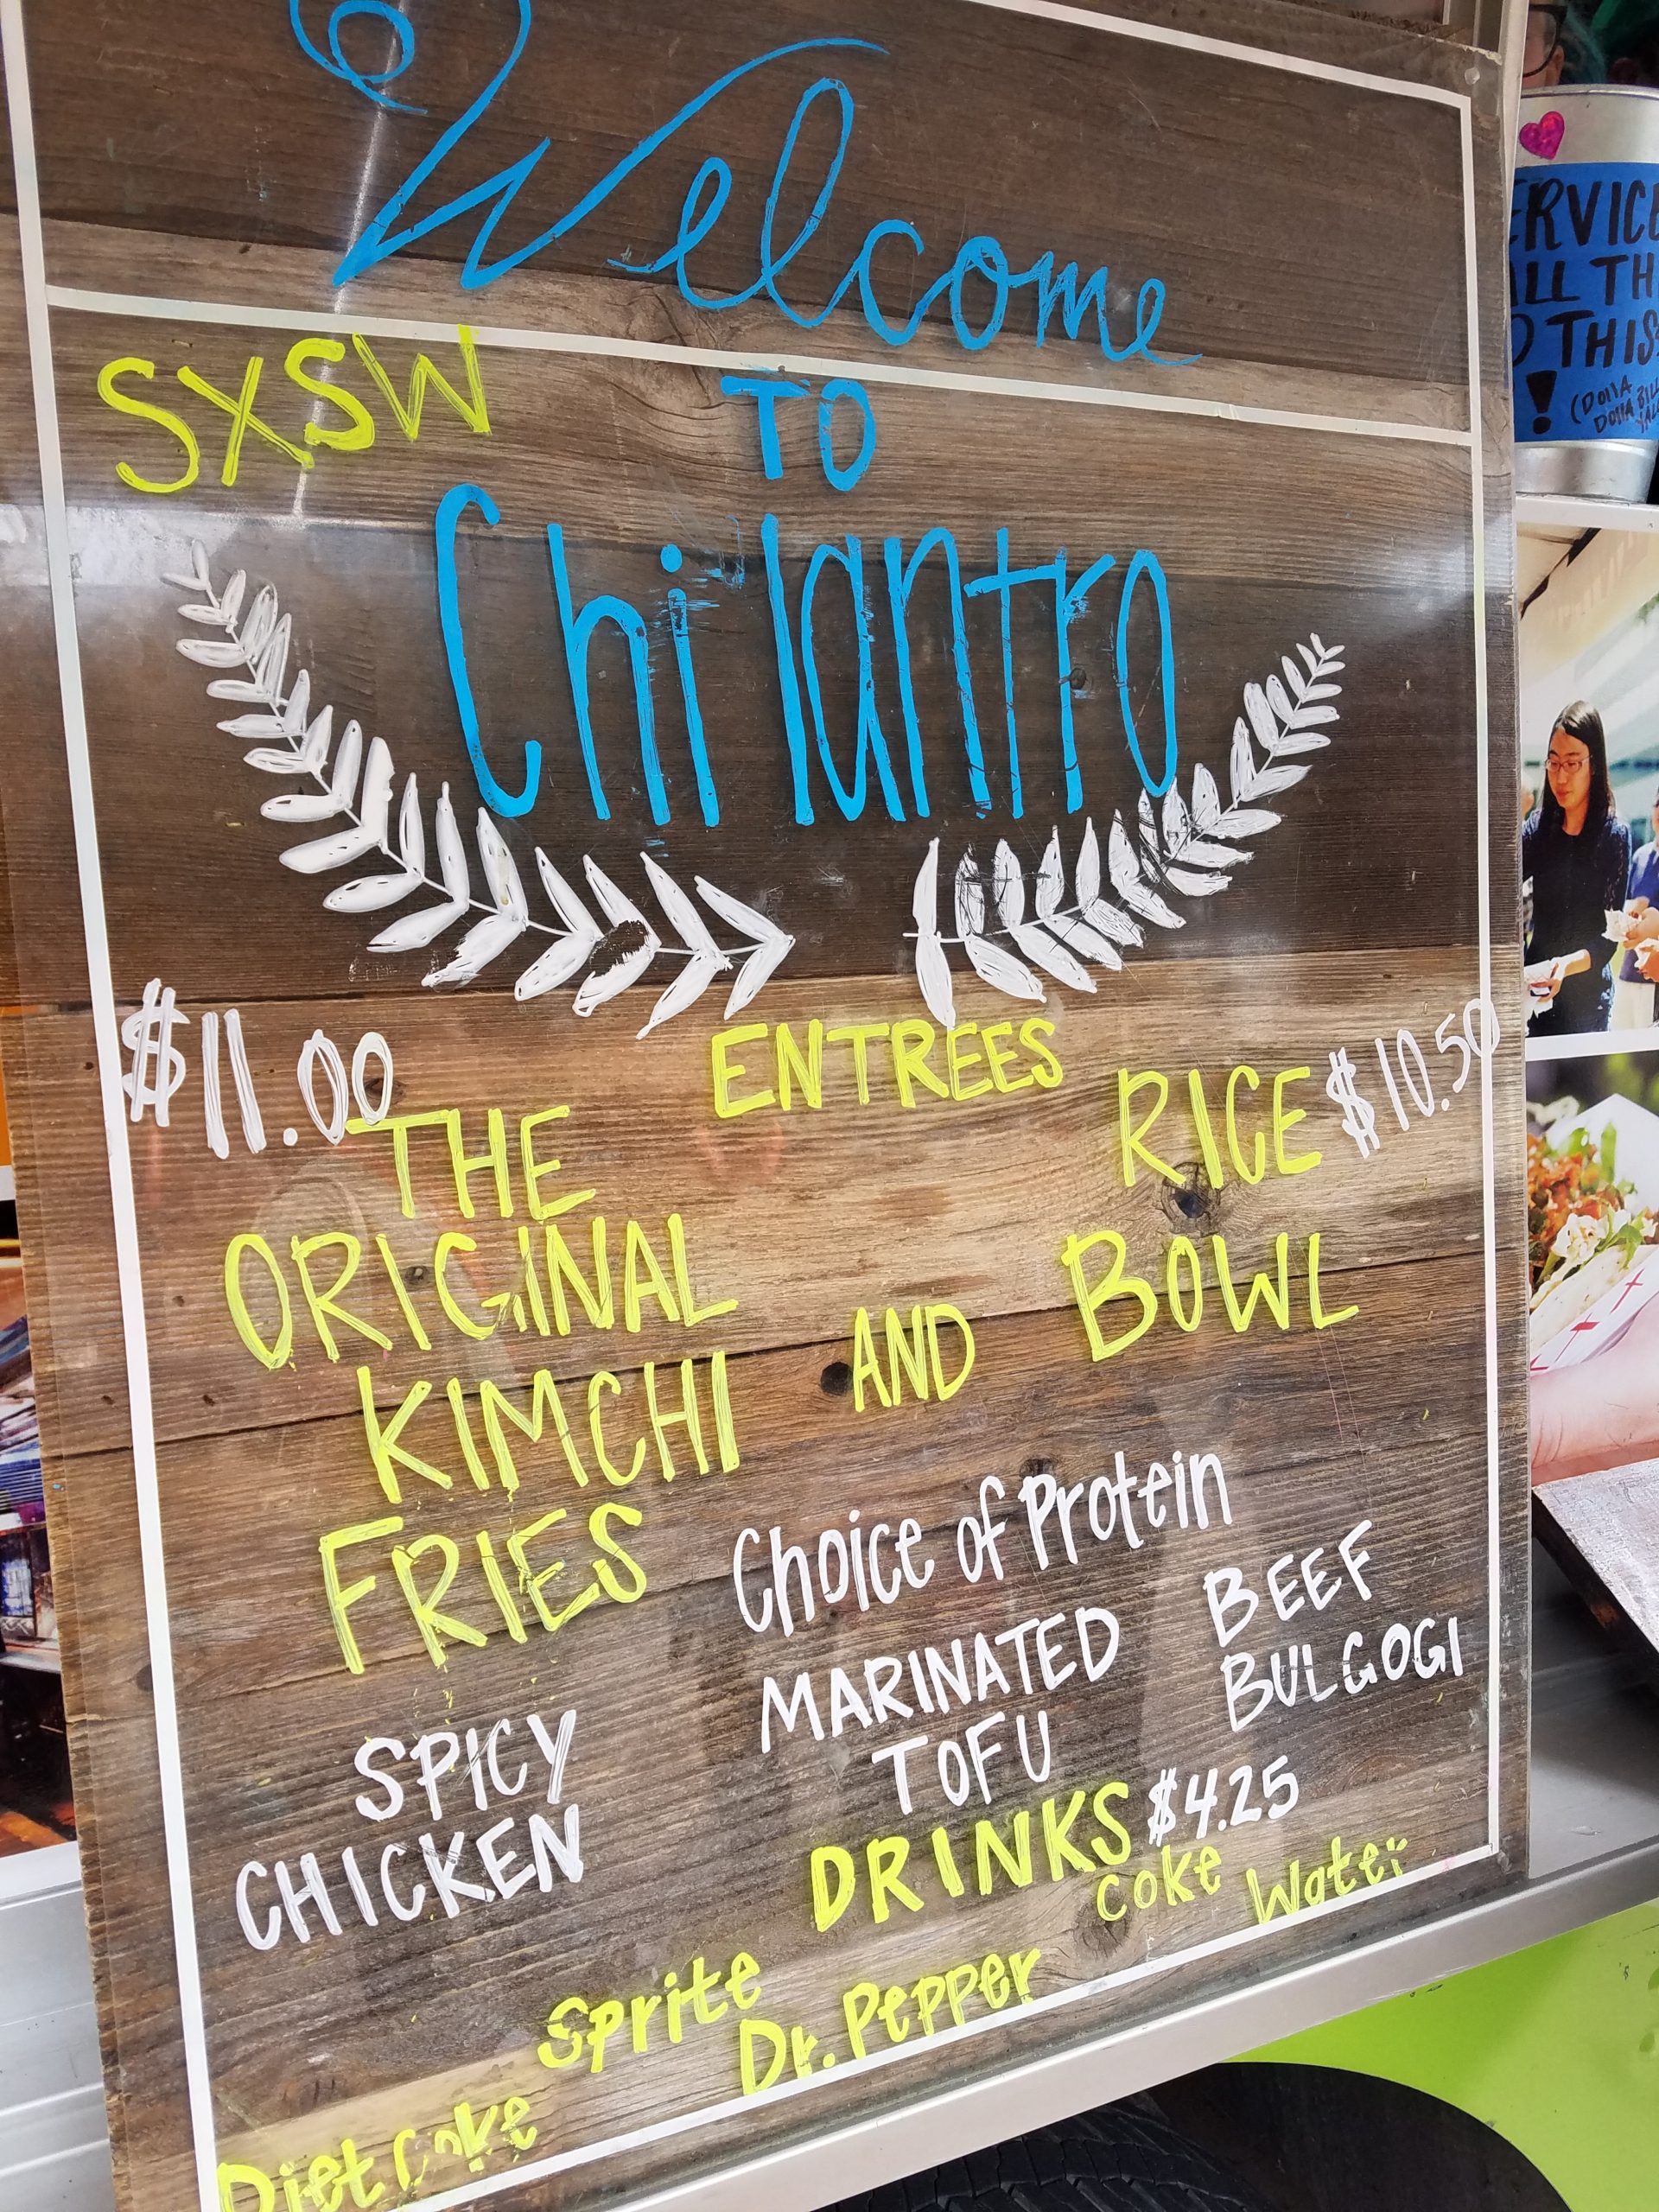 Welcome
SXSW
TO
Chi'lantro
ENTREES
$11.00
THE
ORIGINAL
KIMCHI
FRIES
AND
RICE $10.50
BOWL
Choice of Protein
SPICY
CHICKEN
MARINATED
TOFU
BEEF
BULGOGI
DRINKS $4.25
Coke Water
Sprite
Dr. Pepper
Diet Coke
ERVICE
ALL TH
O THIS
! (DOllA
DOllA BILL